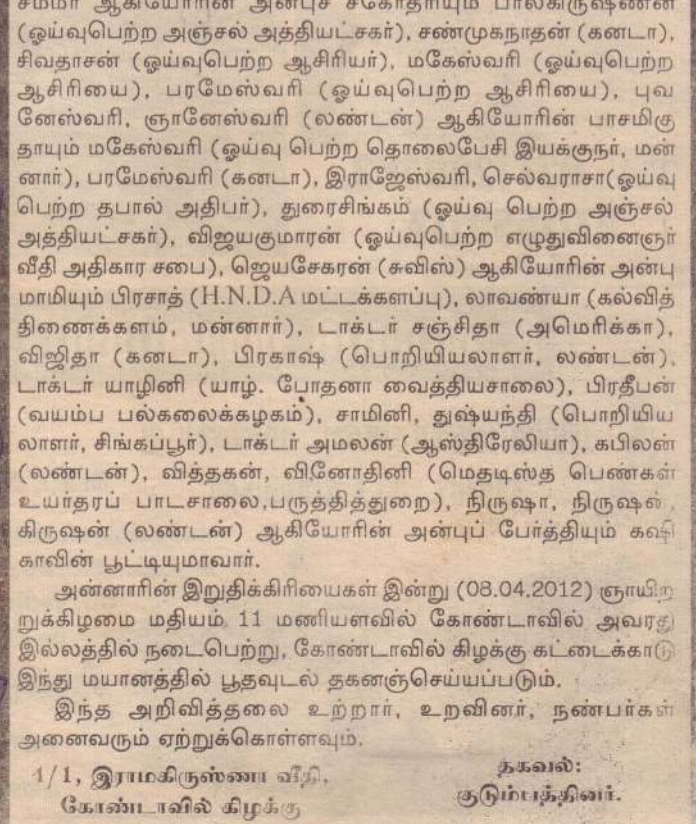 சம்மா ஆகியோரின் அன்புச் சகோதரியும் பாலகிருஷ்ணன்
(ஓய்வுபெற்ற அஞ்சல் அத்தியட்சகர்), சண்முகநாதன் (கனடா),
சிவதாசன் (ஓய்வுபெற்ற ஆசிரியர்), மகேஸ்வரி (ஓய்வுபெற்ற
ஆசிரியை), பரமேஸ்வரி (ஓய்வுபெற்ற ஆசிரியை), புவ
னேஸ்வரி, ஞானேஸ்வரி (லண்டன்) ஆகியோரின் பாசமிகு
தாயும் மகேஸ்வரி (ஓய்வு பெற்ற தொலைபேசி இயக்குநர், மன்
னார்), பரமேஸ்வரி (கனடா), இராஜேஸ்வரி, செல்வராசா(ஓய்வு
பெற்ற தபால் அதிபர்), துரைசிங்கம் (ஓய்வு பெற்ற அஞ்சல்
அத்தியட்சகர்), விஜயகுமாரன் (ஓய்வுபெற்ற எழுதுவினைஞர்
வீதி அதிகார சபை), ஜெயசேகரன் (சுவிஸ்) ஆகியோரின் அன்பு
மாமியும் பிரசாத் (H.N.D.A மட்டக்களப்பு), லாவண்யா (கல்வித்
திணைக்களம், மன்னார்), டாக்டர் சஞ்சிதா (அமெரிக்கா),
விஜிதா (கனடா), பிரகாஷ் (பொறியியலாளர், லண்டன்),
டாக்டர் யாழினி (யாழ். போதனா வைத்தியசாலை), பிரதீபன்
(வயம்ப பல்கலைக்கழகம்), சாமினி, துஷ்யந்தி (பொறியிய
லாளர், சிங்கப்பூர்), டாக்டர் அமலன் (ஆஸ்திரேலியா), கபிலன்
(லண்டன்), வித்தகன், வினோதினி (மெதடிஸ்த பெண்கள்
உயர்தரப் பாடசாலை,பருத்தித்துறை), நிருஷா, நிருஷன்,
கிருஷன் (லண்டன்) ஆகியோரின் அன்புப் பேர்த்தியும் கஷி
காவின் பூட்டியுமாவார்.
அன்னாரின் இறுதிக்கிரியைகள் இன்று (08.04.2012) ஞாயிற்
றுக்கிழமை மதியம் 11 மணியளவில் கோண்டாவில் அவரது
இல்லத்தில் நடைபெற்று, கோண்டாவில் கிழக்கு கட்டைக்காடு
இந்து மயானத்தில் பூதவுடல் தகனஞ்செய்யப்படும்.
இந்த அறிவித்தலை உற்றார், உறவினர், நண்பர்கள்
அனைவரும் ஏற்றுக்கொள்ளவும்.
4/1, இராமகிருஸ்ணா வீதி,
கோண்டாவில் கிழக்கு
தகவல்:
குடும்பத்தினர்.